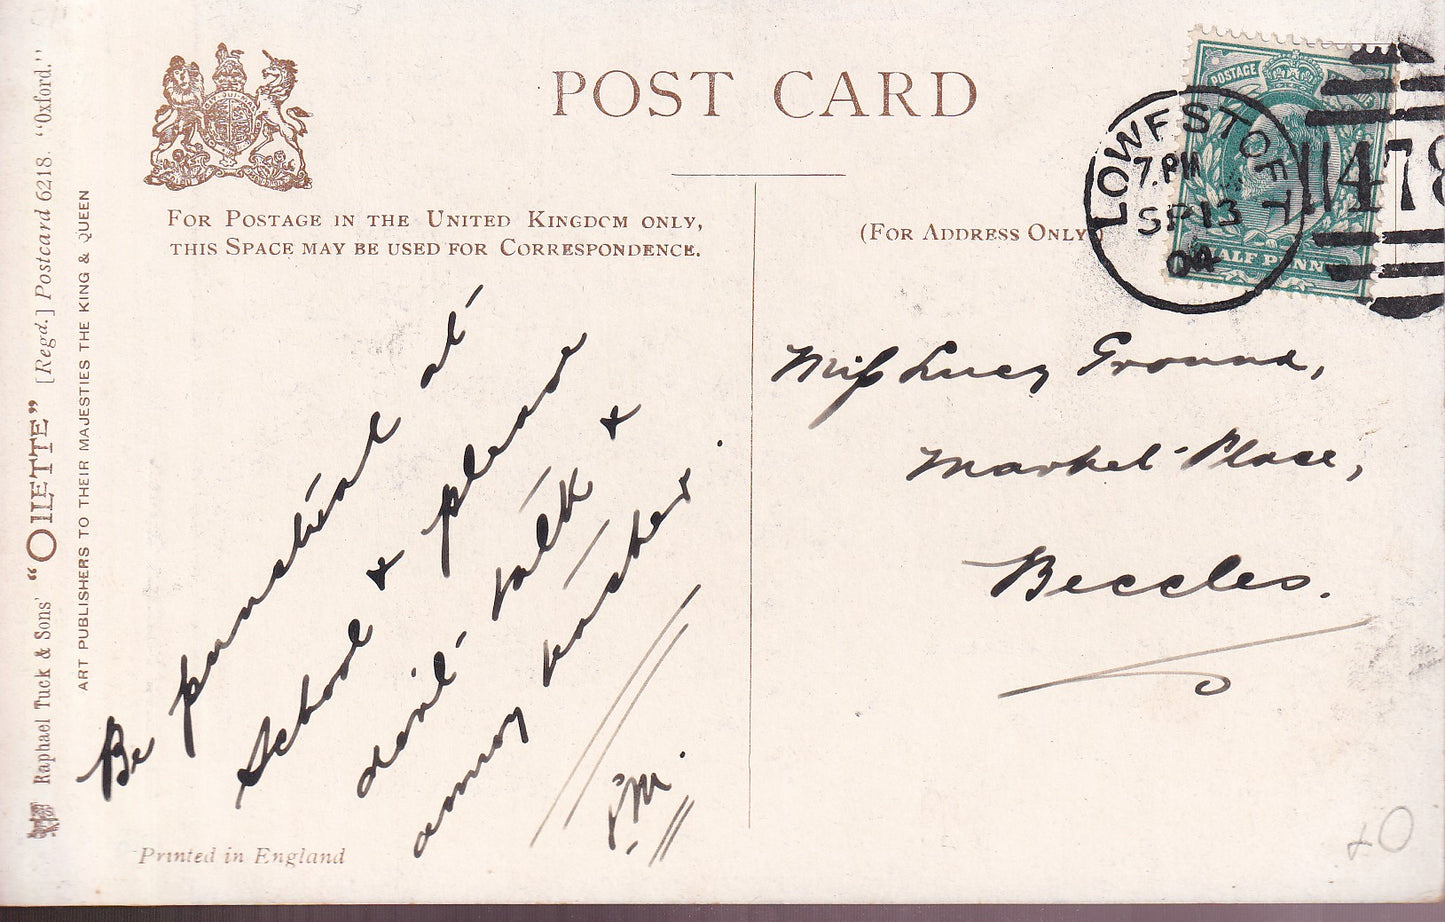 POST CARD
FOR POSTAGE IN THE UNITED KINGDOM ONLY,
THIS SPACE MAY BE USED FOR CORRESPONDENCE.
(FOR ADDRESS ONLY)
POSTAGE
HALF PENN
LOWESTOFT
7.PM
SP 13
04
478
Be punctual at
School & please
don't talk &
annoy teacher.
Miss Lucy Ground,
Market Place,
Beccles.
Raphael Tuck & Sons' "OILETTE" [Regd.] Postcard 6218. "Oxford."
ART PUBLISHERS TO THEIR MAJESTIES THE KING & QUEEN
Printed in England